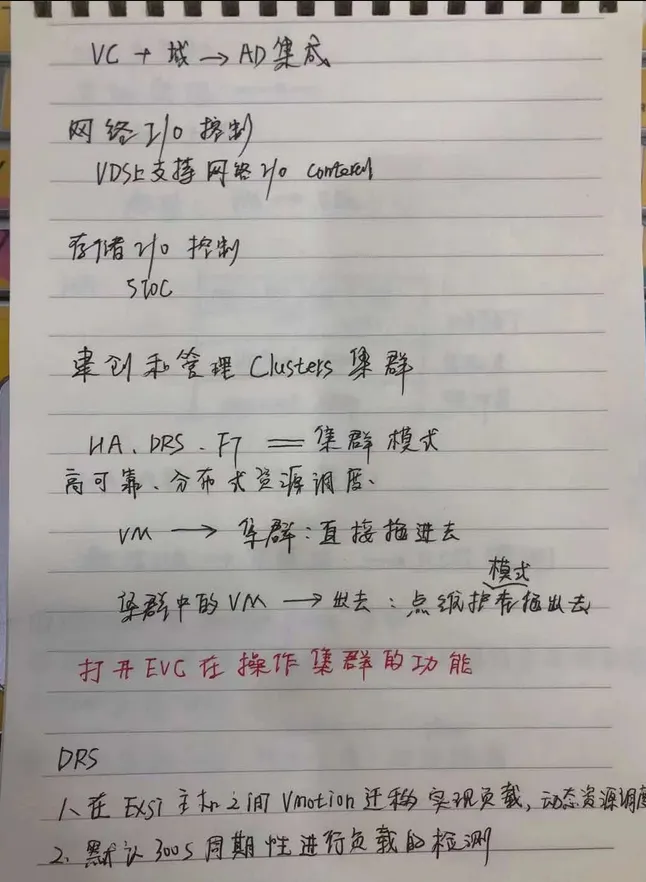 VC + 域 → AD集成
网络I/O控制
VDS上支持网络I/O conterel
存储I/O控制
SIOC
建创和管理Clusters集群
HA、DRS、FT == 集群模式
高可靠、分布式资源调度、
VM → 集群:直接拖进去
模式
集群中的VM → 出去:点维护在拖出去
打开EVC在操作集群的功能
DRS
1、在EXSI主机之间Vmotion迁移实现负载,动态资源调度
2、默认300S周期性进行负载的检测